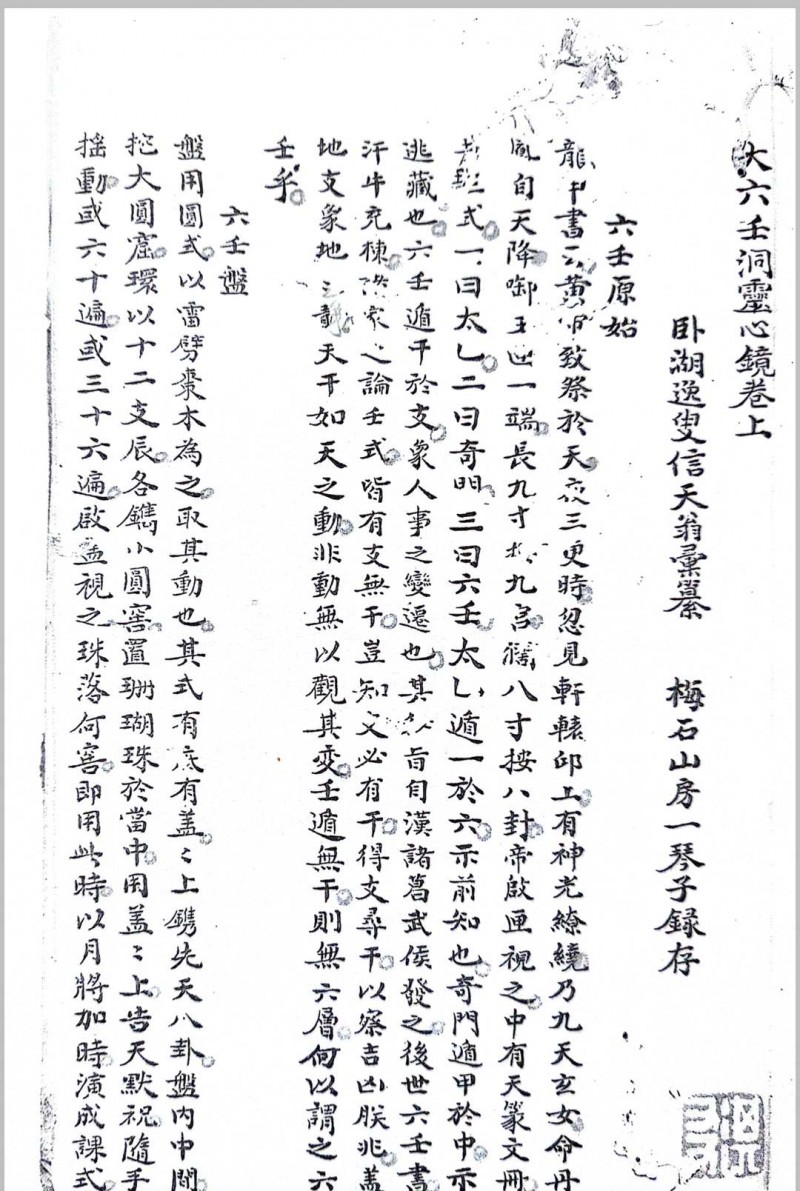 大六壬洞靈心鏡卷上
卧湖逸叟信天翁彙纂 梅石山房一琴子録存
六壬原始
龍甲書云黄帝致祭於天夜三更時忽見軒轅邱上有神光繚繞乃九天玄女命丹
凰自天降啣玉匣一端長九寸九八寸按八卦帝啟匣視之中有天篆文冊
三式一曰太乙二曰奇門三曰六壬太乙遁一於六示前知也奇門遁甲於中示
逃藏也六壬遁干於支象人事之變遷也其旨自漢諸葛武侯發之後世六壬書
汗牛充棟家之論壬式皆有支無干豈知支必有干得支尋干以察吉凶朕兆盖
地支象地天干如天之動非動無以觀其变壬遁無干則無六層何以謂之六
壬乎
六壬盤
盤用圓式以雷劈棗木為之取其動也其式有底有盖〻上鐫先天八卦盤内中間
挖大圓窟環以十二支辰各鐫小圓窖置珊瑚珠於當中用盖〻上告天默祝隨手
搖動或六十遍或三十六遍啟盖視之珠落何窖即用此時以月將加時演成課式